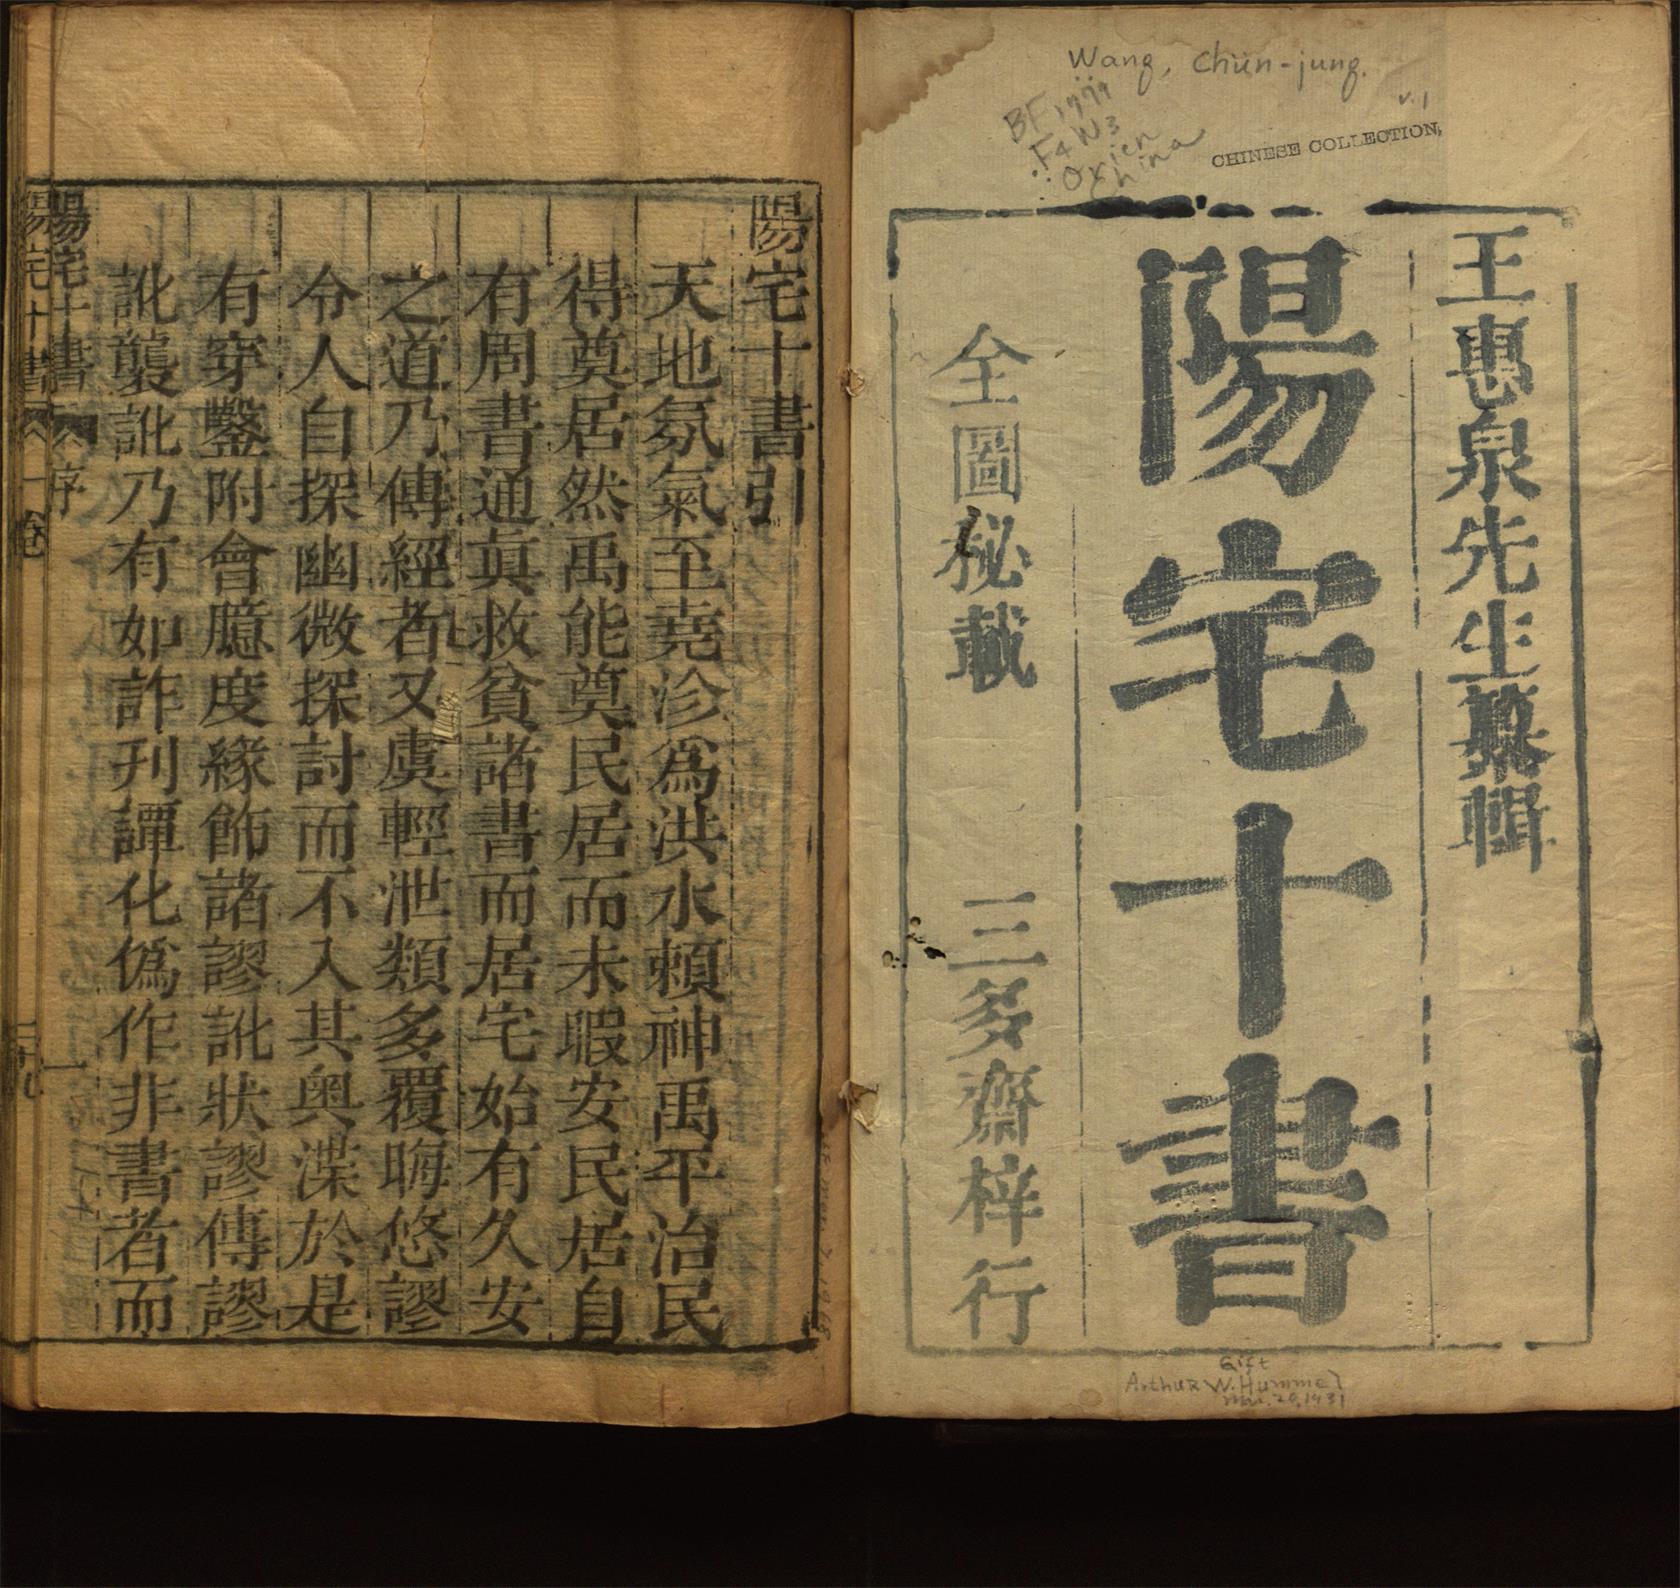 Wang, Chün-jung.
v.1
BF1779
.F4W3
Orien
China
CHINESE COLLECTION
王惠泉先生纂輯
陽宅十書
全圖秘載　三多齋梓行
Gift
Arthur W. Hummel
Mar. 28, 1931
陽宅十書引
天地氛氣至堯沴爲洪水賴神禹平治民
得奠居然禹能奠民居而未暇安民居自
有周書通真救貧諸書而居宅始有久安
之道乃傳經者又虞輕泄類多覆晦悠謬
令人自探幽微探討而不入其奥渫於是
有穿鑿附會臆度緣飾諸謬訛狀謬傳謬
訛襲訛乃有如詐刊譚化僞作非書者而
陽宅十書　序　一
陽宅十書　一卷